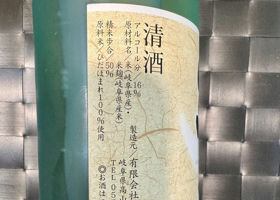 清酒
アルコール分 16%
原材料名/米(岐阜県産)・
米麹(岐阜県産米)
精米歩合/50%
原料米/ひだほまれ100%使用
製造元/有限会社
岐阜県高山
TEL05
◎お酒は